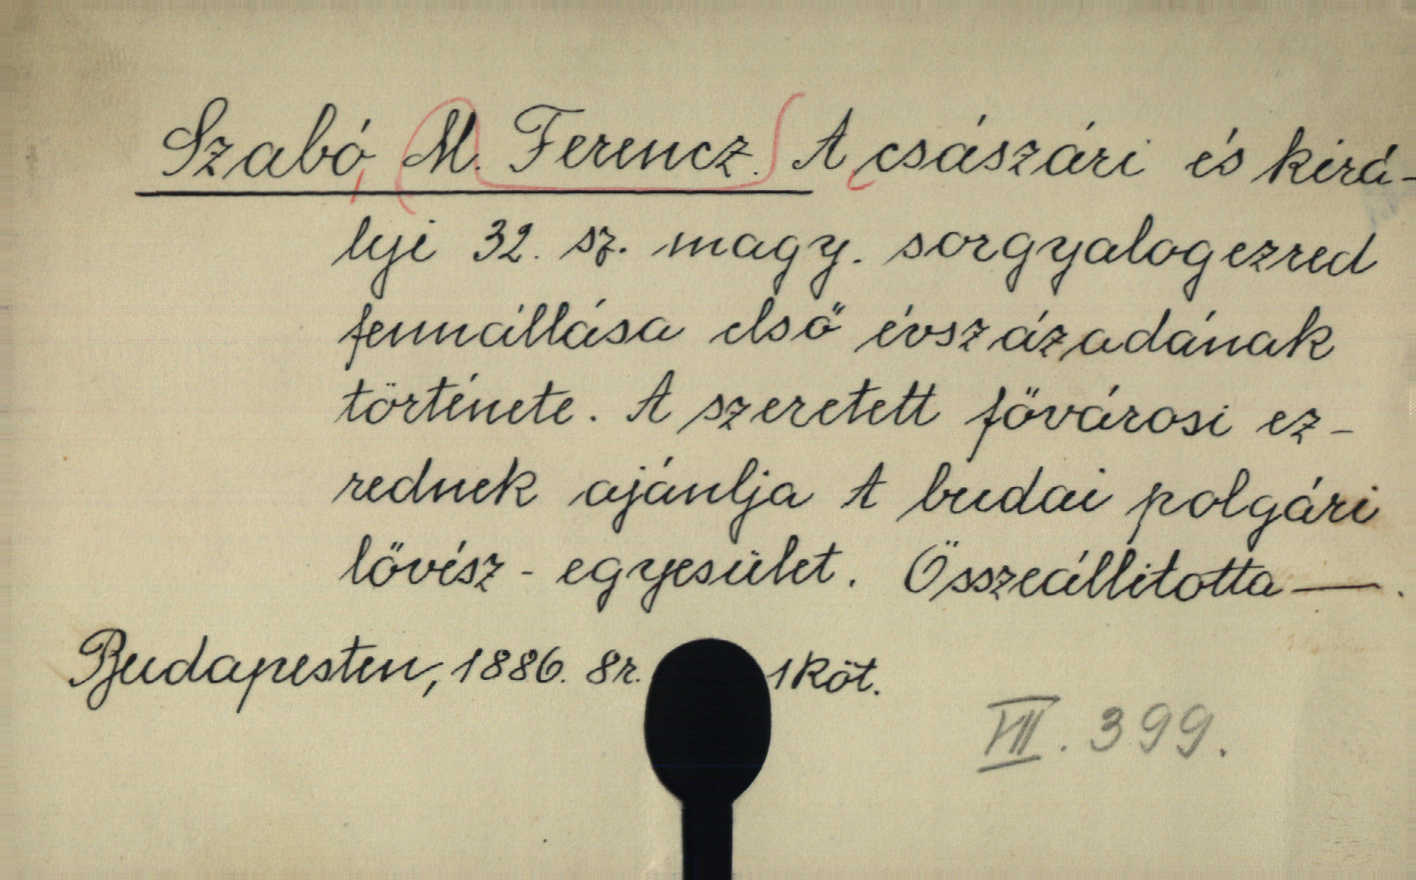 Szabó, M. Ferencz. A császári és kirá-
lyi 32. sz. magy. sorgyalogezred
fennállása első évszázadának
története. A szeretett fővárosi ez-
rednek ajánlja A budai polgári
lövész-egyesület. Összeállitotta —.
Budapesten, 1886. 8r. 1 köt.
VII. 399.